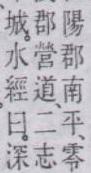 陽郡南平、零
郡營道、二志
城。水經曰。深